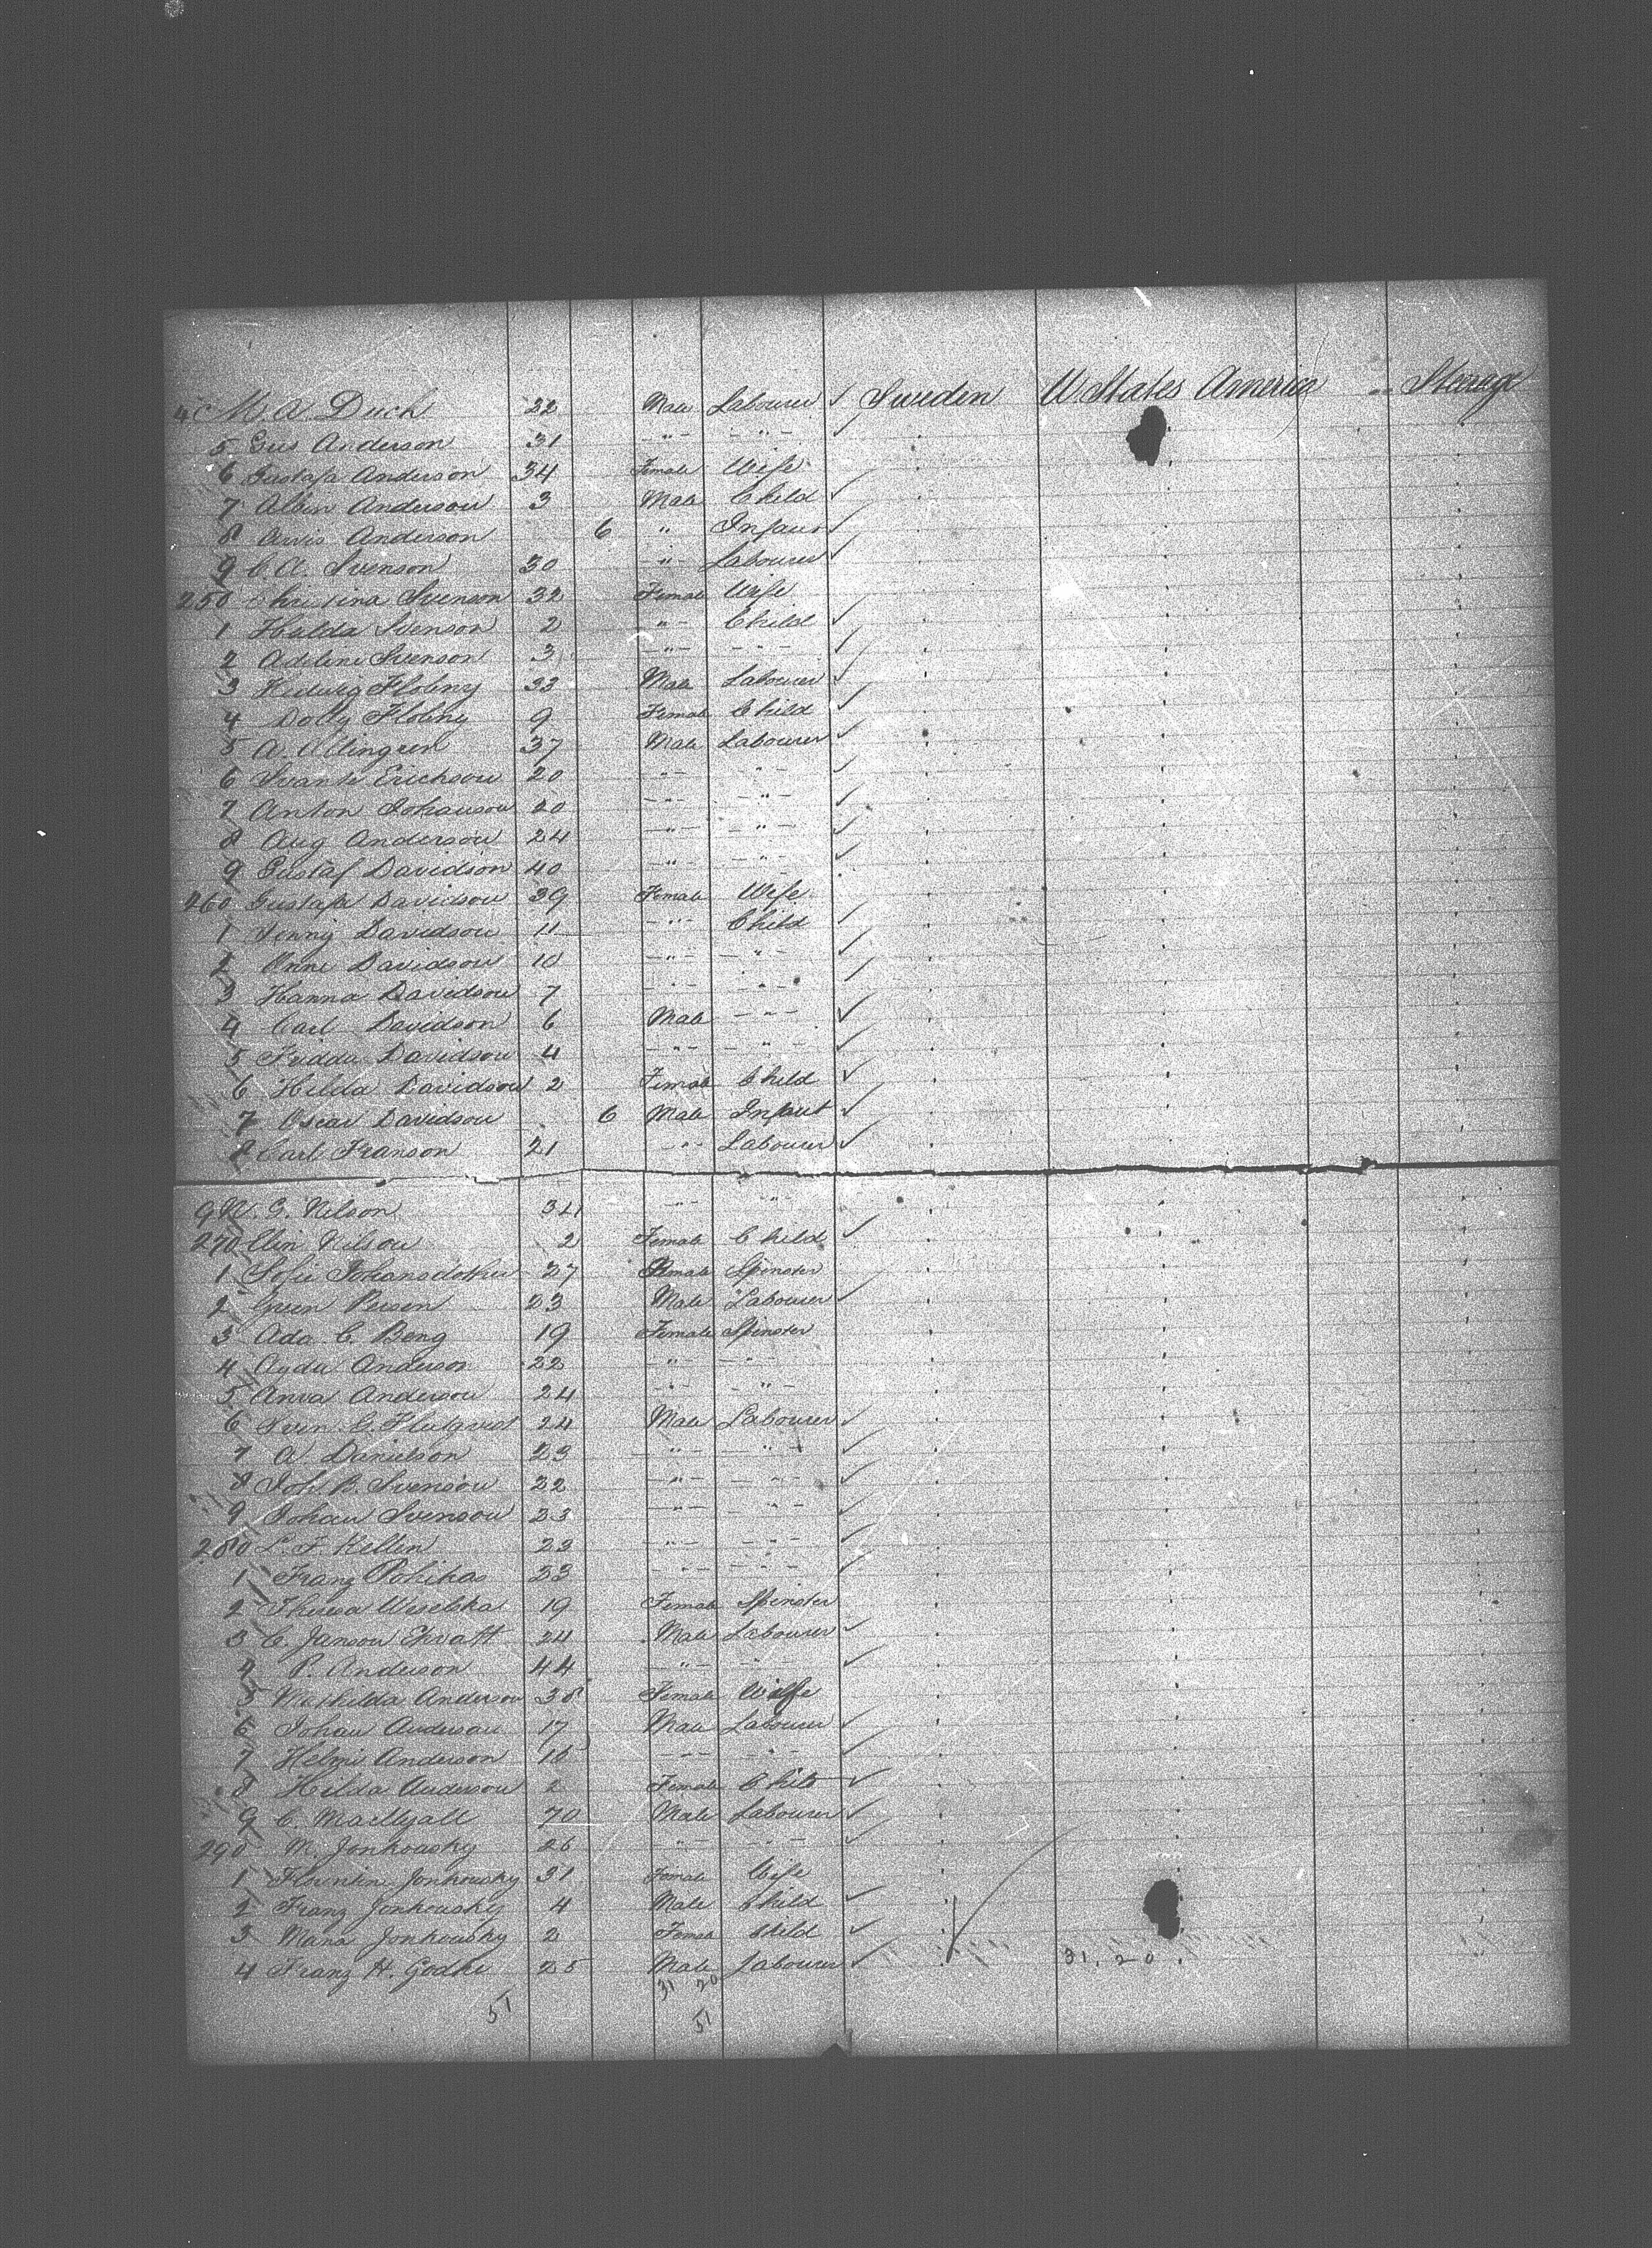 M. A. Duch 22 Male Labourer ✓ Sweden U States America " Steerage
5 Gus Anderson 31 -"- -"- ✓
6 Gustafa Anderson 34 Female Wife
7 Albin Anderson 3 Male Child ✓
8 Anderson 6 " Infant ✓
9 C. A. Svenson 30 -"- Labourer ✓
250 Christina Svenson 32 Female Wife
1 Hulda Svenson 2 -"- Child ✓
2 Adeline Svenson 3 -"- -"- ✓
3 Hedwig Floling 33 Male Labourer ✓
4 Dolly Floling 9 Female Child ✓
5 A. 37 Male Labourer ✓
6 Svante Erickson 20 -"- -"- ✓
7 Anton Johanson 20 -"- -"- ✓
8 Aug Anderson 24 -"- -"- ✓
9 Gustaf Davidson 40 -"- -"- ✓
260 Gustafa Davidson 39 Female Wife
1 Jenny Davidson 11 -"- Child ✓
2 Anni Davidson 10 -"- -"- ✓
3 Hanna Davidson 7 -"- -"- ✓
4 Carl Davidson 6 Male -"- ✓
5 Fridda Davidson 4 -"- -"- ✓
6 Hilda Davidson 2 Female Child ✓
7 Oscar Davidson 6 Male Infant ✓
8 Carl Franson 21 -"- Labourer ✓
9 G. Nelson 34 -"- -"-
270 Elin Nilson 2 Female Child ✓
1 Sofie Johansdotter 27 Female Spinster
2 Person 23 Male Labourer ✓
3 Ada C. Beng 19 Female Spinster
4 Anderson 22 -"- -"-
5 Anna Anderson 24 -"- -"-
6 Sven G. 24 Male Labourer ✓
7 A Danielson 23 -"- -"- ✓
8 Joh. B. Svenson 22 -"- -"- ✓
9 Johan Svenson 23 -"- -"- ✓
280 L. F. Kellin 23 -"- -"- ✓
1 Franz Pokikas 23 -"- -"- ✓
2 Theresa Weselska 19 Female Spinster
3 C. Janson 24 Male Labourer ✓
4 P. Anderson 44 -"- -"- ✓
5 Mathilda Anderson 38 Female Wife
6 Johan Anderson 17 Male Labourer ✓
7 Helmi Anderson 16 -"- -"- ✓
8 Hilda Anderson 2 Female Child ✓
9 C. 70 Male Labourer ✓
290 M. Jonkousky 26 -"- -"- ✓
1 Florintine Jonkousky 31 Female Wife
2 Franz Jonkousky 4 Male Child ✓
3 Maria Jonkousky 2 Female Child ✓
4 Franz H. Godke 25 Male Labourer ✓ 31. 20.
31 20
51 51